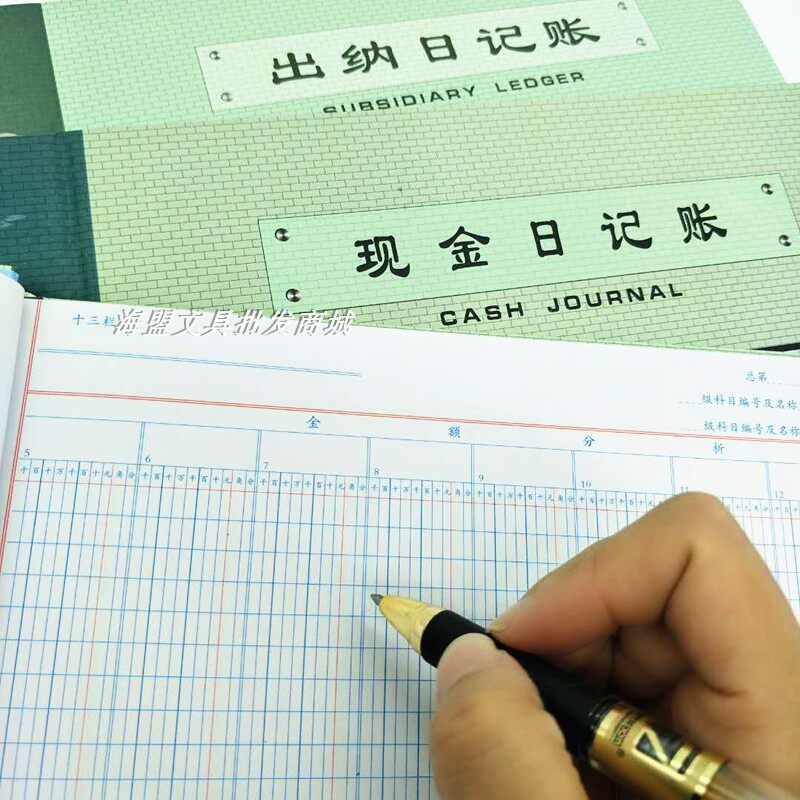 出纳日记账
SUBSIDIARY LEDGER
现金日记账
CASH JOURNAL
十三栏
海盟文具批发商城
总第
级科目编号及名称
级科目编号及名称
金额分析
5 6 7 8 9 10 11 12
千百十万千百十元角分 千百十万千百十元角分 千百十万千百十元角分 千百十万千百十元角分 千百十万千百十元角分